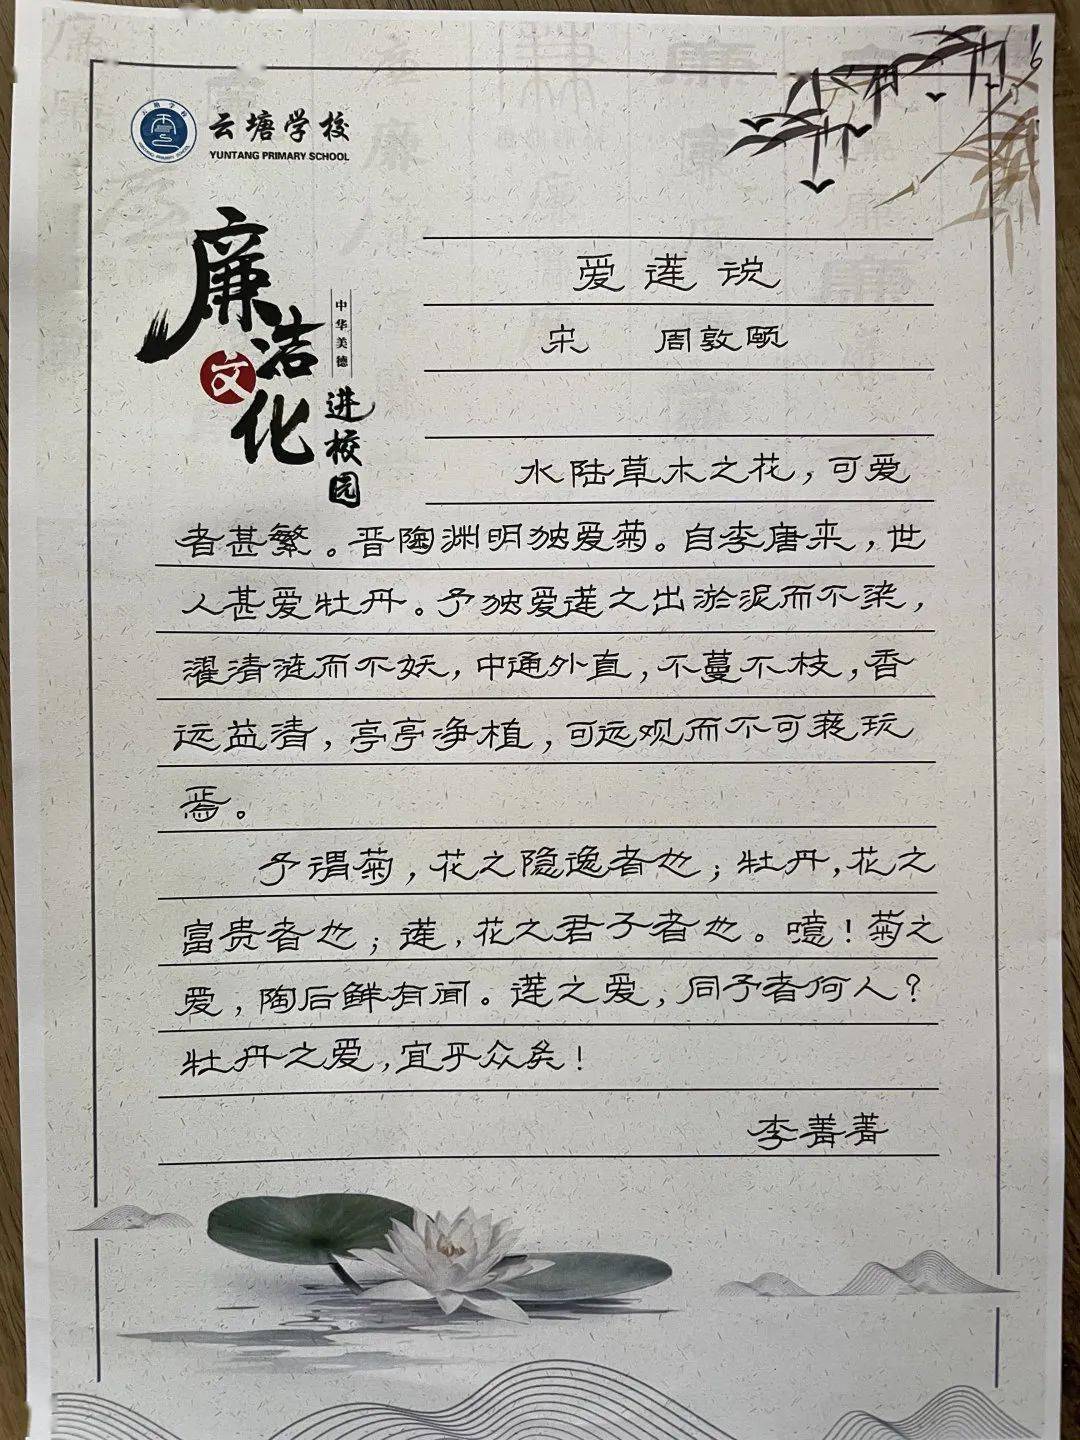 云塘学校
YUNTANG PRIMARY SCHOOL
廉洁
文
化
中华美德
进校园
爱莲说
宋 周敦颐
水陆草木之花，可爱
者甚繁。晋陶渊明独爱菊。自李唐来，世
人甚爱牡丹。予独爱莲之出淤泥而不染，
濯清涟而不妖，中通外直，不蔓不枝，香
远益清，亭亭净植，可远观而不可亵玩
焉。
予谓菊，花之隐逸者也；牡丹，花之
富贵者也；莲，花之君子者也。噫！菊之
爱，陶后鲜有闻。莲之爱，同予者何人？
牡丹之爱，宜乎众矣！
李菁菁